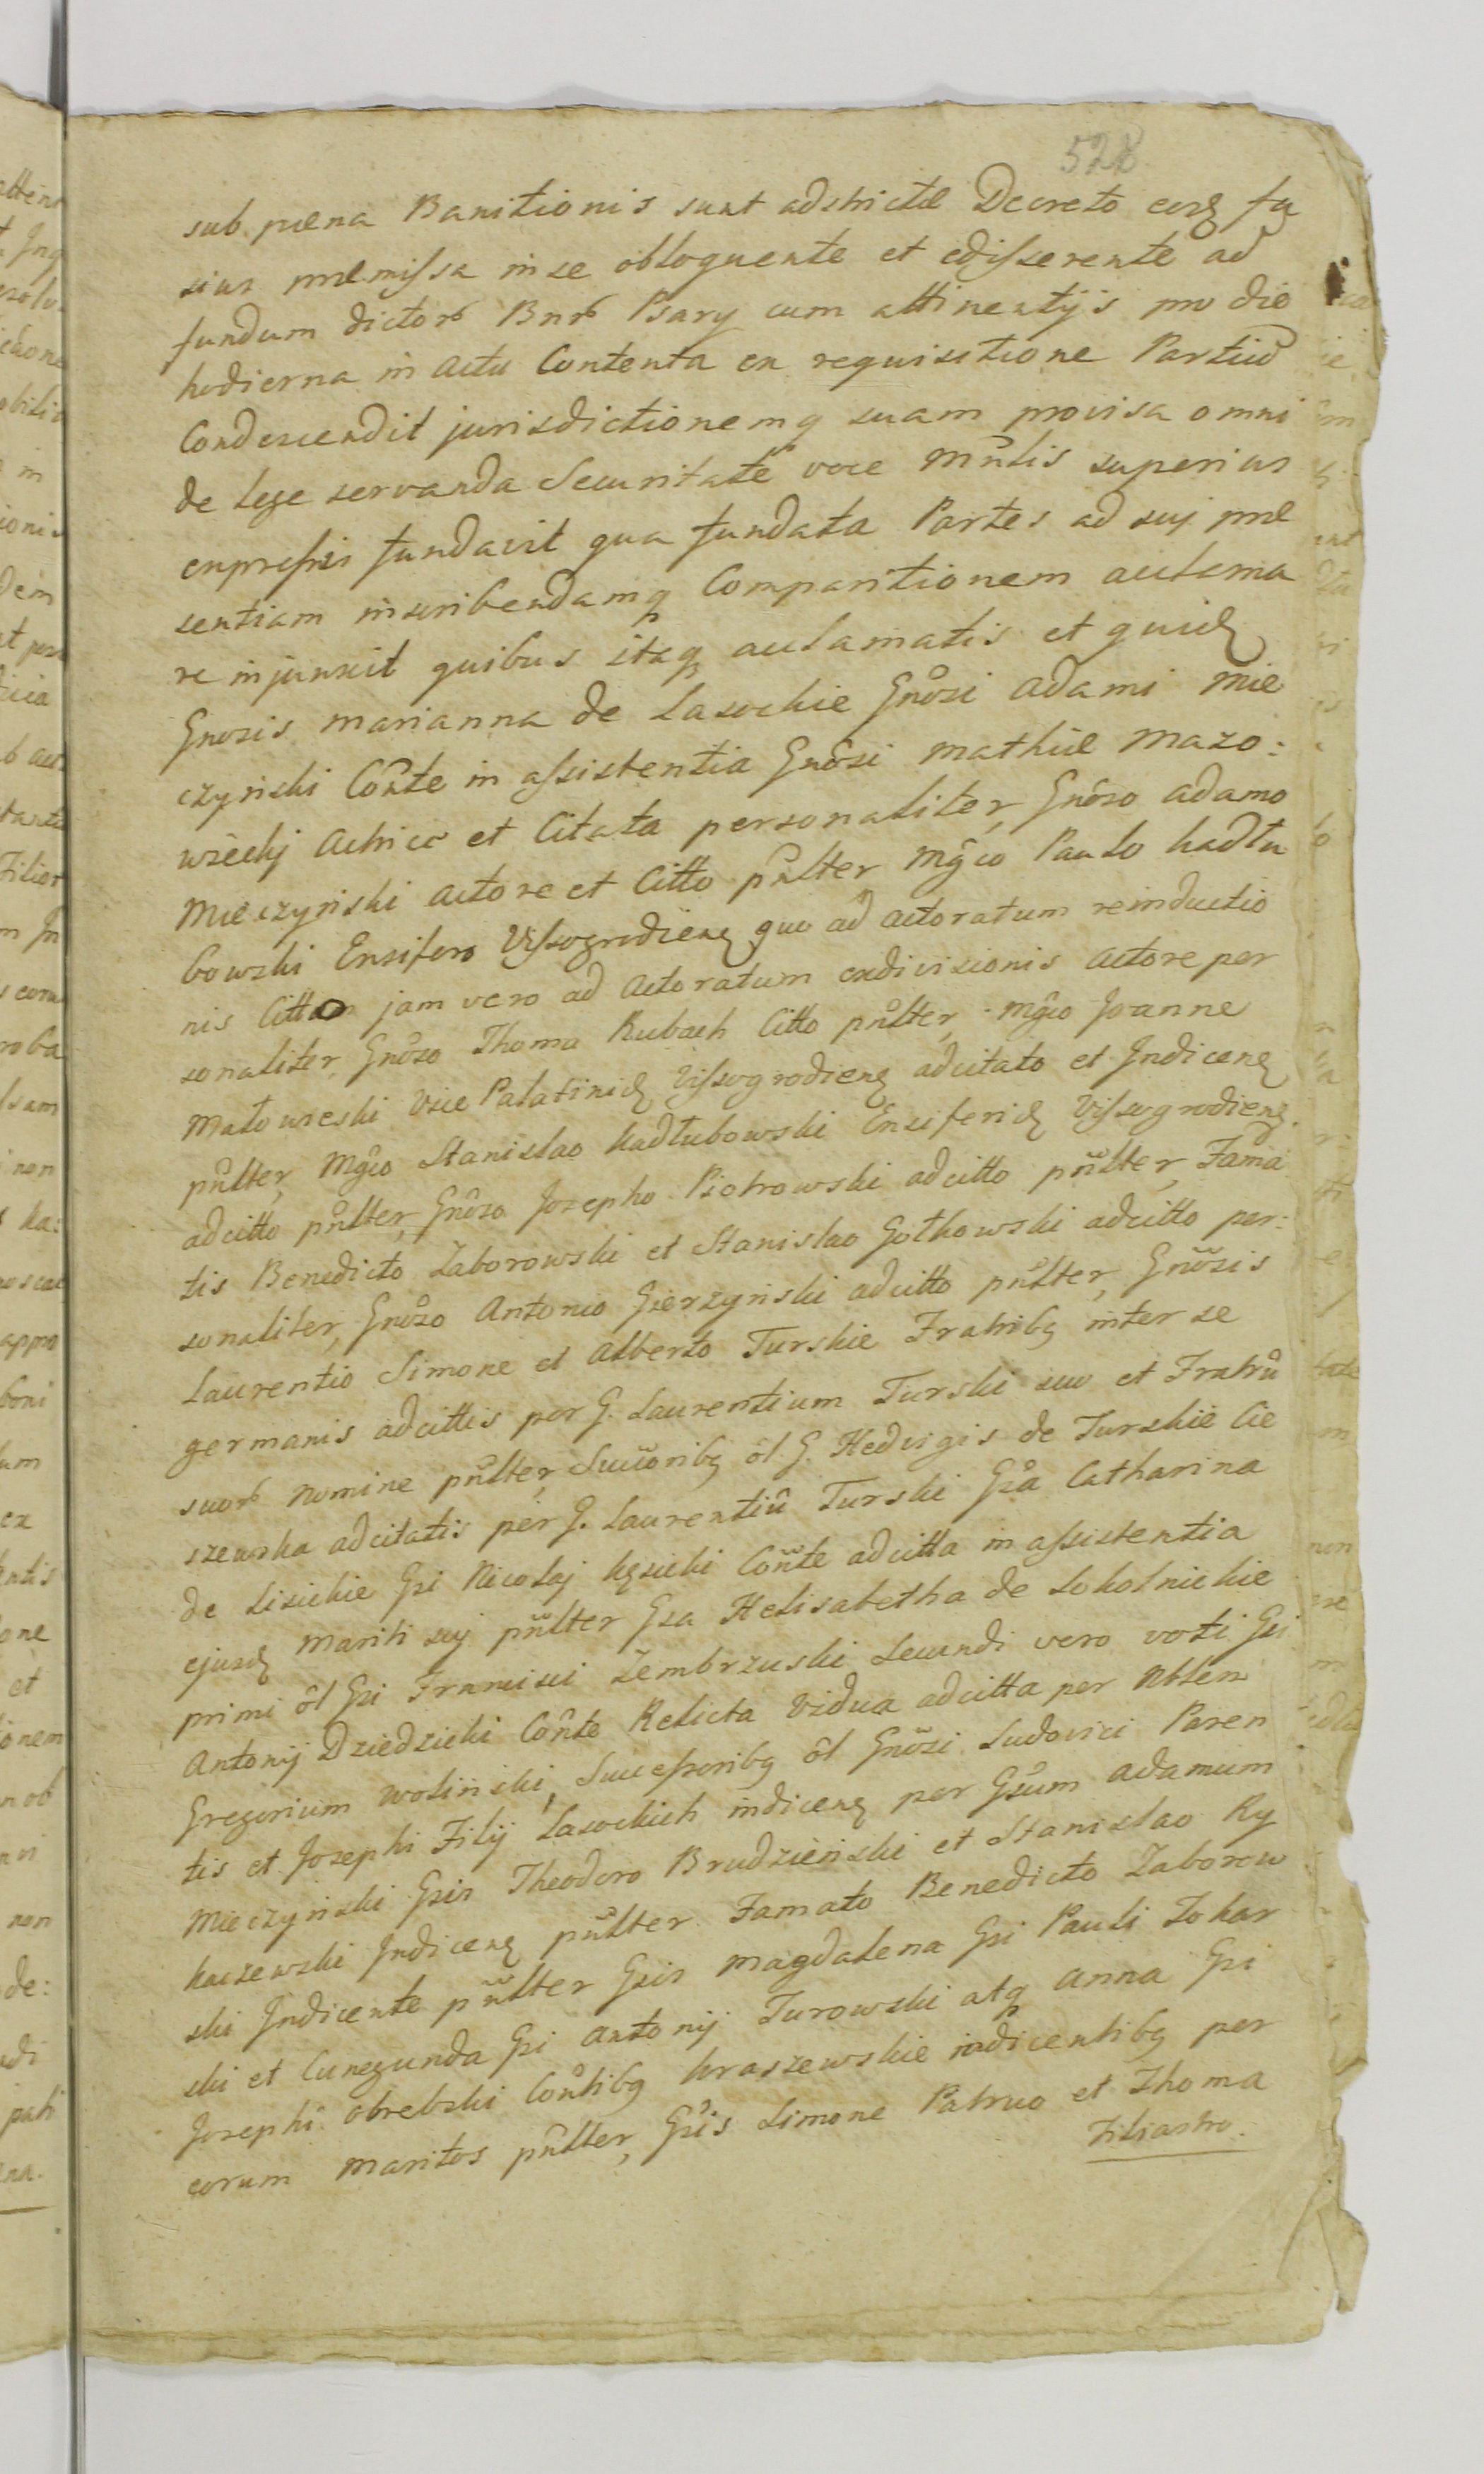 528
sub pæna Banitionis sunt adstrictæ Decreto eorq fu
sius præmissa in se obloquente et edisserente ad
fundum dictor Bnr Psary cum attinentijs pro die
hodierna in Actu Contenta ex requisitione Partiu
Condescendit jurisdictionemq suam provisa omni
de lege servanda Securitate voce Mnlis superius
expressi fundavit qua fundata Partes ad suj præ
sentiam inscribendamq Comparitionem acclama
re injunxit quibus itaq acclamatis et quidq
Gnosis Marianna de Lasockie Gnosi Adami Mie
czyński Conte in assistentia Gnosi Mathiæ Mazo:
wiecky Actrice et Citata personaliter, Gnoso Adamo
Mieczyński Actore et Citto pnlter Mgco Paulo Kadłu
bowski Ensifero Vissogrodienq quo ad Actoratum reinductio
nis Citto jam vero ad Actoratum exdivisionis Actore per
sonaliter, Gnoso Thoma Rubach Citto pnlter, Mgco Joanne
Matowieski Vice Palatinidq Vissogrodienq adcitato et Indicenq
pnlter, Mgco Stanislao Kadłubowski Ensiferidq Vissogrodienq
adcitto pnlter, Gnoso Josepho Piotrowski adcitto pnlter, Fama
tis Benedicto Zaborowski et Stanislao Gołkowski adcitto per:
sonaliter, Gnoso Antonio Gierzyński adcitto pnlter, Gnosis
Laurentio Simone et Alberto Turskie Fratribq inter se
germanis adcittis per G. Laurentium Turski suo et Fratru
suor nomine pnlter, Succoribq ol G. Hedvigis de Turskie Cie
szewska adcitatis per G. Laurentiu Turski Gsa Catharina
de Lisickie Gsi Nicolaj Kęsicki Conte adcitta in assistentia
ejusdq Mariti suj pnlter Gsa Helisabetha de Sokolnickie
primi ol Gsi Francisci Zembrzuski Secundi vero voti Gsi
Antonij Dziedzicki Conte Relicta Vidua adcitta per Nblem
Gregorium Woliński, Successoribq ol Gnosi Ludovici Paren
tis et Josephi Filij Lasockich indicenq per Gsum Adamum
Mieczyński Gsis Theodoro Brudzieński et Stanislao Ry
kaczewski Indicenq pnlter Famato Benedicto Zaborow
ski Indicente pnlter Gsis Magdalena Gsi Pauli Tokar
ski et Cunegunda Gsi Antonij Turowski atq Anna Gsi
Josephi Obrebski Contibq Kraszewskie indicentibq per
eorum Maritos pnlter, Gsis Simone Patruo et Thoma
Filiastro.